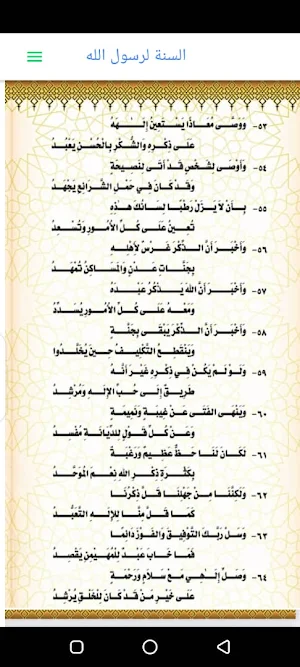 السنة لرسول الله
٥٣- وَوَصَّى مُعَاذًا يَسْتَعِينُ إِلَـٰهَهُ
عَلَى ذِكْرِهِ وَالشُّكْرِ بِالْحُسْنِ يَعْبُدُ
٥٤- وَأَوْصَى لِشَخْصٍ قَدْ أَتَى لِنَصِيحَةٍ
وَقَدْ كَانَ فِي حَمْلِ الشَّرَائِعِ يَجْهَدُ
٥٥- بِأَنْ لَا يَزَلْ رَطْبًا لِسَانُكَ هَذِهِ
تُعِينُ عَلَى كُلِّ الْأُمُورِ وَتُسْعِدُ
٥٦- وَأَخْبَرَ أَنَّ الذِّكْرَ غَرْسٌ لِأَهْلِهِ
بِجَنَّاتِ عَدْنٍ وَالْمَسَاكِنُ تُمْهَدُ
٥٧- وَأَخْبَرَ أَنَّ اللهَ يَذْكُرُ عَبْدَهُ
وَمَعْهُ عَلَى كُلِّ الْأُمُورِ يُسَدِّدُ
٥٨- وَأَخْبَرَ أَنَّ الذِّكْرَ يَبْقَى بِجَنَّةٍ
وَيَنْقَطِعُ التَّكْلِيفُ حِينَ يُخَلَّدُوا
٥٩- وَلَوْ لَمْ يَكُنْ فِي ذِكْرِهِ غَيْرَ أَنَّهُ
طَرِيقٌ إِلَى حُبِّ الْإِلَهِ وَمُرْشِدُ
٦٠- وَيَنْهَى الْفَتَى عَنْ غِيبَةٍ وَنَمِيمَةٍ
وَعَنْ كُلِّ قَوْلٍ لِلدِّيَانَةِ مُفْسِدُ
٦١- لَكَانَ لَنَا حَظٌّ عَظِيمٌ وَرَغْبَةٌ
بِكَثْرَةِ ذِكْرِ اللهِ نِعْمَ الْمُوَحَّدُ
٦٢- وَلَكِنَّنَا مِنْ جَهْلِنَا قَلَّ ذِكْرُنَا
كَمَا قَلَّ مِنَّا لِلْإِلَهِ التَّعَبُّدُ
٦٣- وَسَلْ رَبَّكَ التَّوْفِيقَ وَالْفَوْزَ دَائِمًا
فَمَا خَابَ عَبْدٌ لِلْمُهَيْمِنِ يَقْصِدُ
٦٤- وَصَلِّ إِلَـٰهِي مَعْ سَلَامٍ وَرَحْمَةٍ
عَلَى خَيْرِ مَنْ قَدْ كَانَ لِلْخَلْقِ يُرْشِدُ